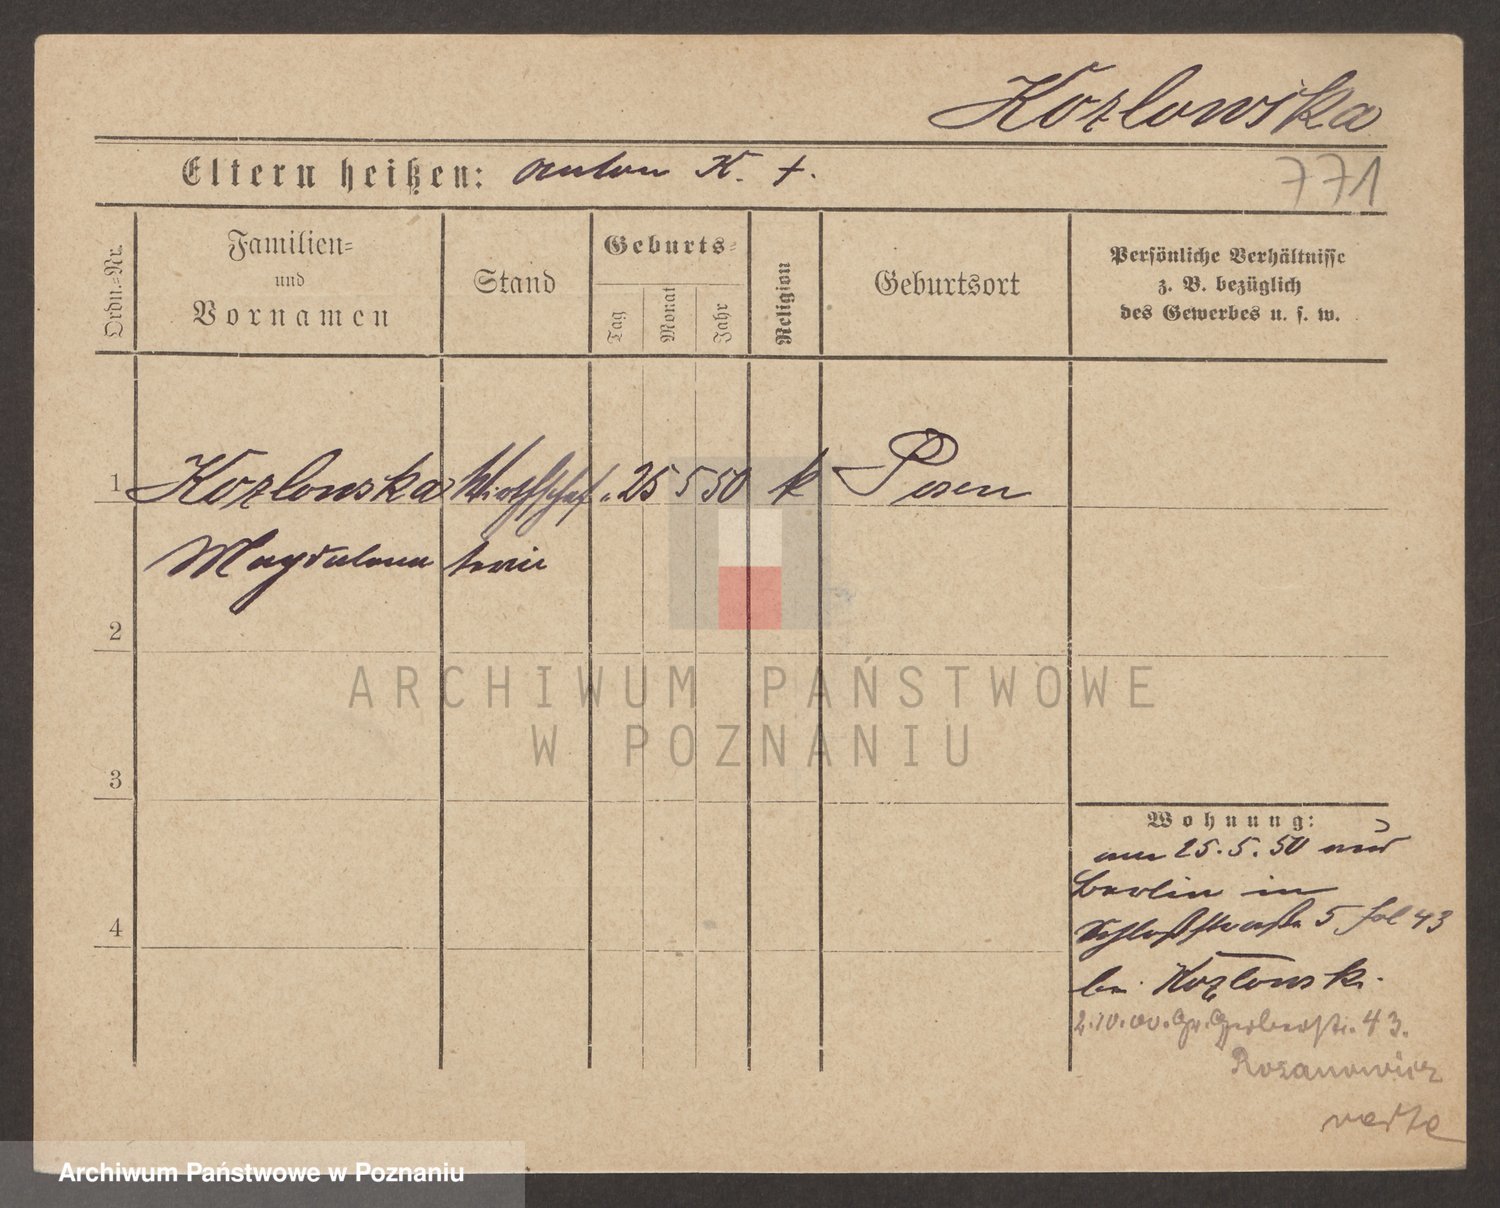 Kozlowska
Eltern heißen: Anton K. †.
771
Ordn.=Nr.
Familien=
und
Vornamen
Stand
Geburts=
Tag
Monat
Jahr
Religion
Geburtsort
Persönliche Verhältnisse
z. B. bezüglich
des Gewerbes u. s. w.
1 Kozlowska Wirthschaf= 25 5 50 k Posen
Magdalena terin
2
ARCHIWUM PAŃSTWOWE
W POZNANIU
3
Wohnung:
am 25.5.50 aus
Berlin in
Schloßstraße 5
4
bei Kozlowsk.
2.10.00. Gr. Gerberstr. 43.
Rozanowicz
verte
Archiwum Państwowe w Poznaniu